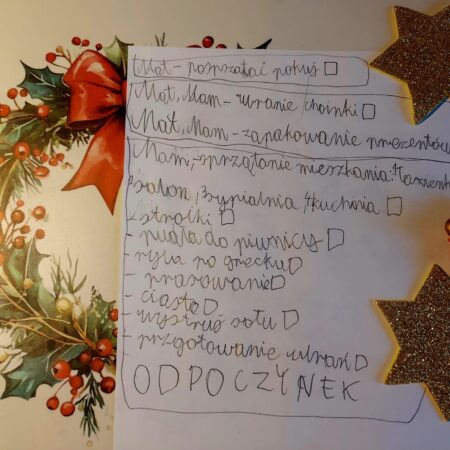 Mat - posprzątać pokuj □
Mat, Mam - ubranie choinki □
Mat, Mam - zapakowanie prezentów
Mam, sprzątanie mieszkania: łazienk
Salon, sypialnia, kuchnia □
stroiki □
- pudła do piwnicy □
ryba po grecku □
- prasowanie □
- ciasto □
- wystruj stołu □
- przgotowanie ubrań □
ODPOCZYNEK